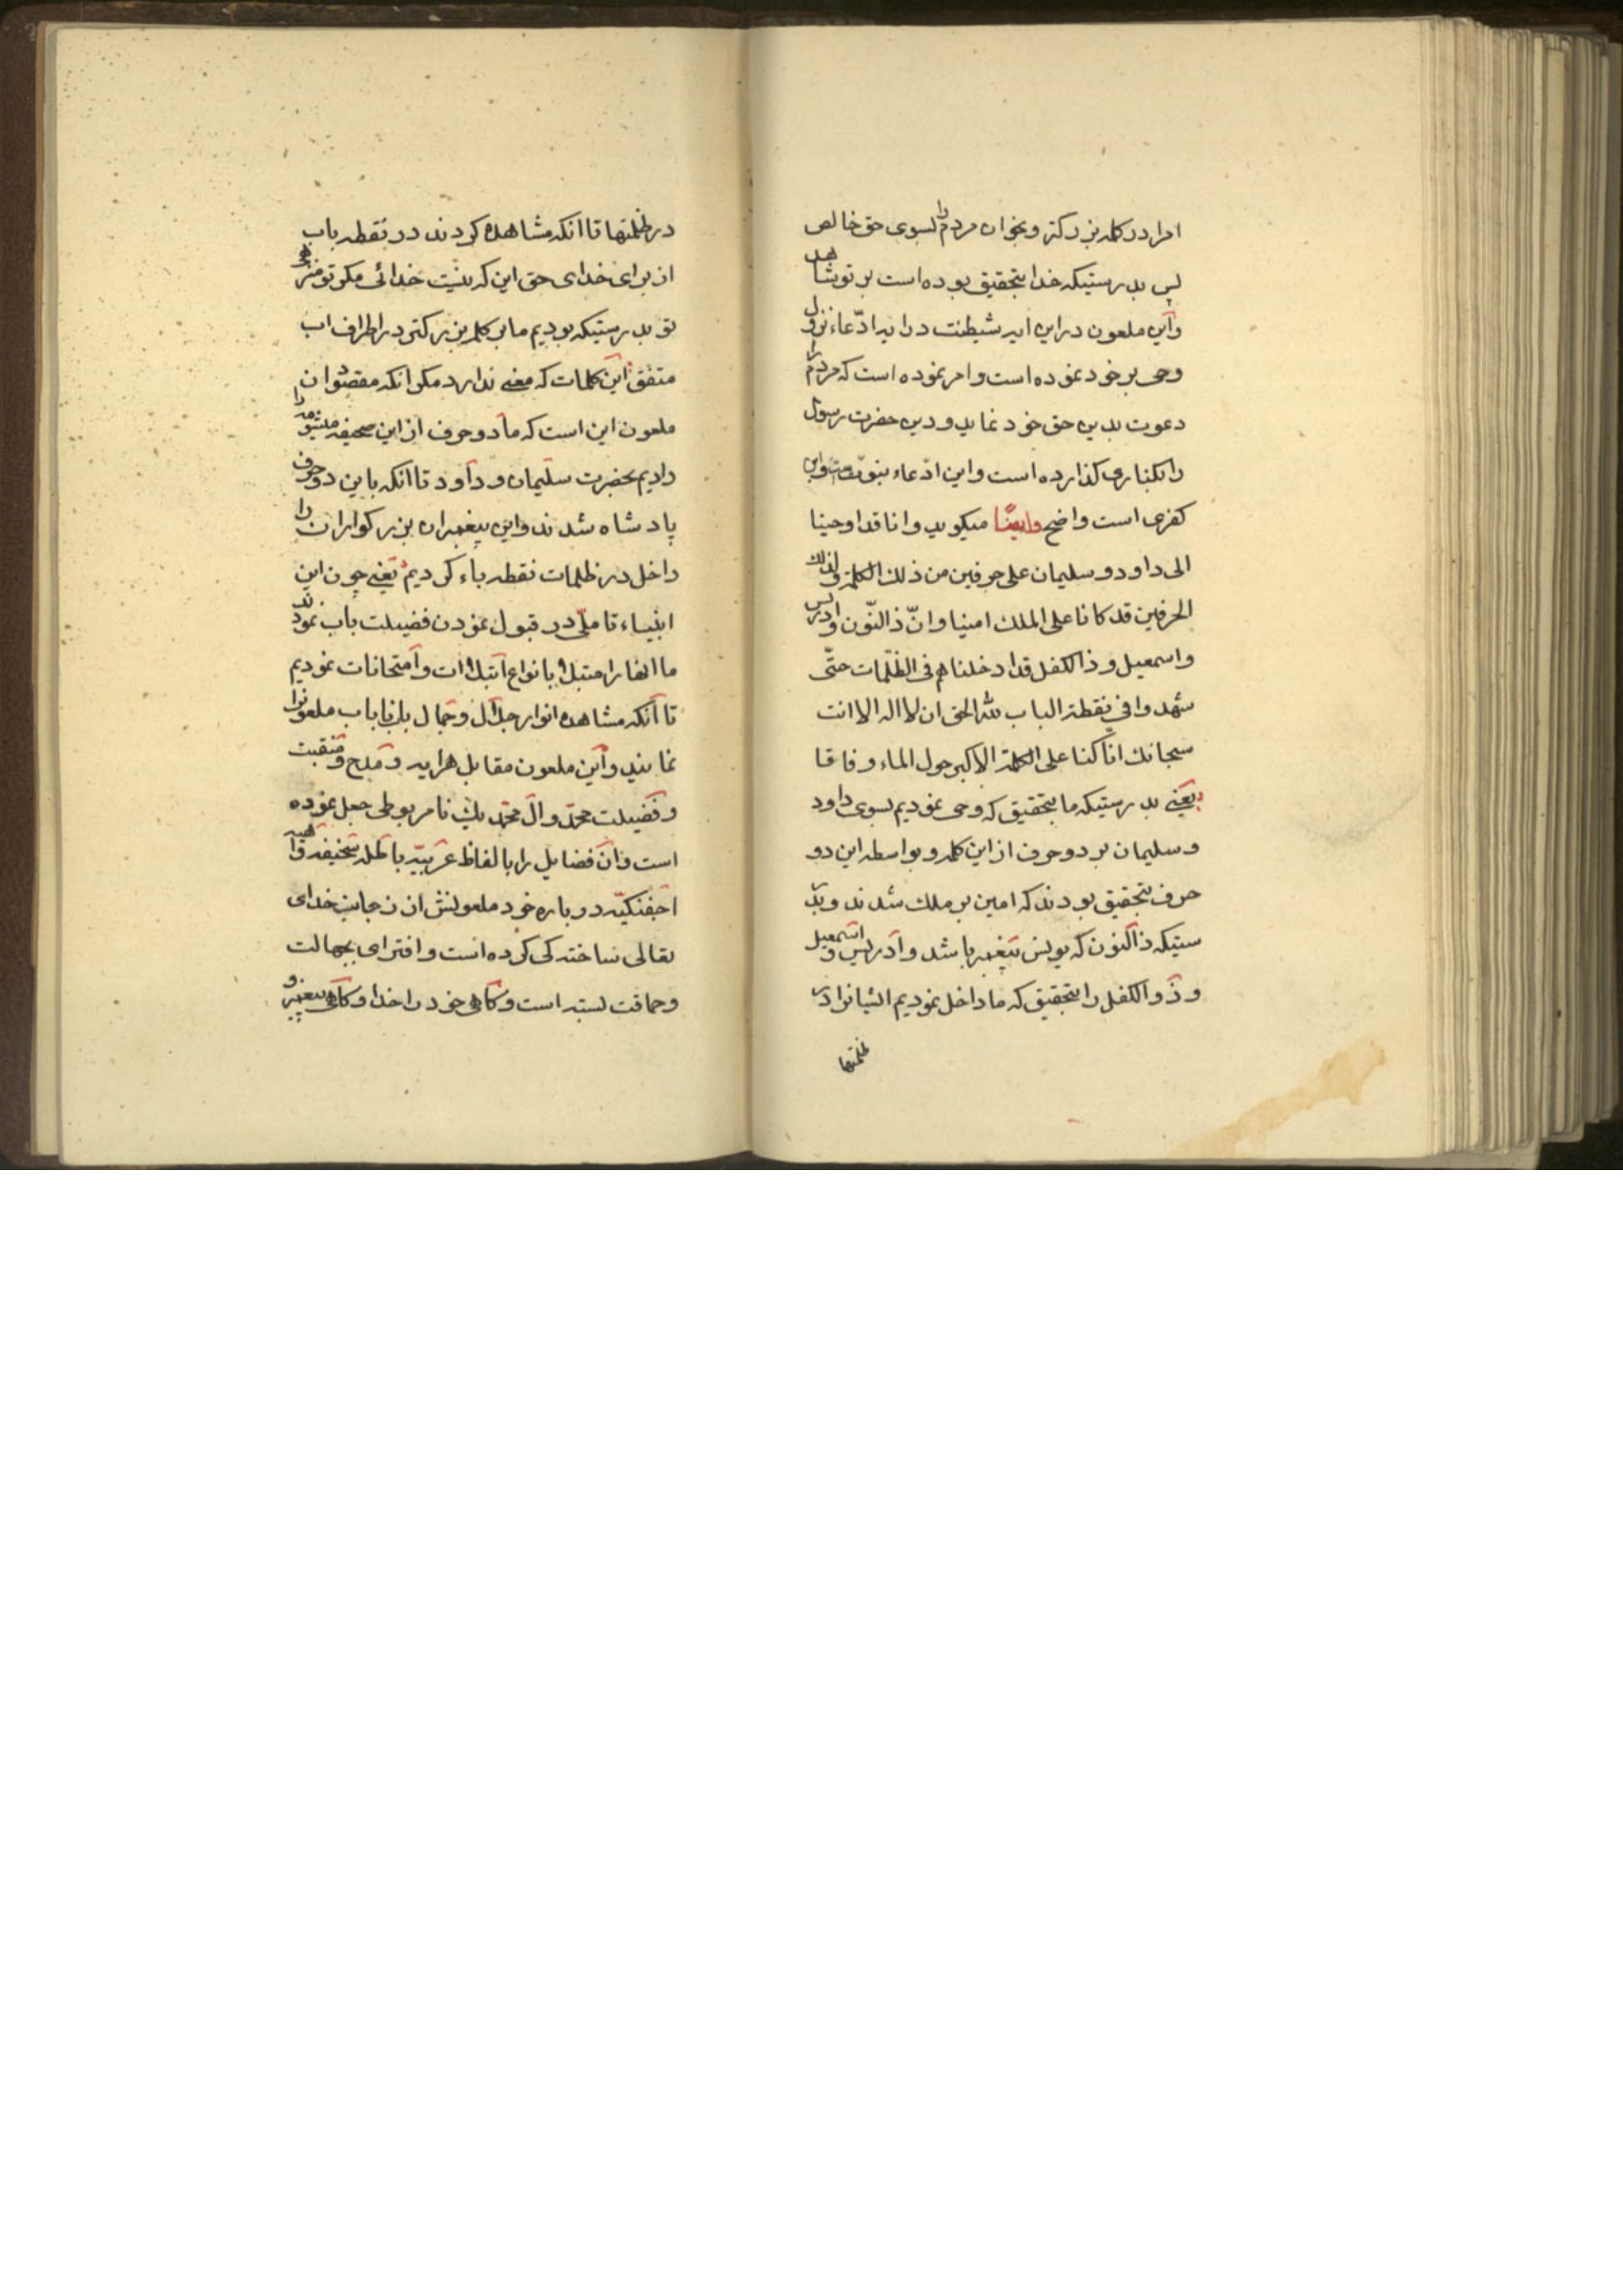 امرا در کلمه بزرکتر و بخوان مردم را بسوی حق خالص
پس بدرستیکه خدا بتحقیق بوده است بر تو شاهد
واین ملعون دراین ایه شیطنت درایه ادّعاء نزول
وحی بر خود نموده است و امر نموده است که مردم را
دعوت بدین حق خود نماید و دین حضرت رسول
را بکناری کذارده است و این ادّعاء نبوّتست و این
کفری است واضح وایضًا میکوید وانا قد اوحینا
الی داود و سلیمان علی حرفین من ذلک الکلمة و لذلک
الحرفین قد کانا علی الملک امینا وانّ ذالنّون و ادریس
واسمعیل و ذالکفل قد ادخلناهم فی الظّلمات حتّی
شهدوا فی نقطة الباب لله الحق ان لا اله الا انت
سبحانک انّا کنا علی الکلمة الاکبر حول الماء وفاقا
یعنی بدرستیکه ما بتحقیق که وحی نمودیم بسوی داود
و سلیمان بر دو حرف از این کلمه و بواسطه این دو
حرف بتحقیق بودند که امین بر ملک شدند و بدر
ستیکه ذالنون که یونس پیغمبر باشد و ادریس و اسمعیل
و ذوالکفل را بتحقیق که ما داخل نمودیم ایشانرا در
ظلمتها
در ظلمتها تا انکه مشاهده کردند در نقطه باب
از برای خدای حق این که نیست خدائی مکر تو منزهی
تو بدرستیکه بودیم ما بر کلمه بزرکتر در اطراف اب
متفق این کلمات که معنی ندارد مکر انکه مقصود ان
ملعون این است که ما دو حرف از این صحیفه را
دادیم بحضرت سلیمان و داود تا انکه باین دو حرف
پادشاه شدند واین پیغمبران بزرکواران را
داخل در ظلمات نقطه باء کردیم یعنی چون این
انبیاء تاملّی در قبول نمودن فضیلت باب نمودند
ما انها را مبتلا بانواع ابتلاات و امتحانات نمودیم
تا انکه مشاهده انوار جلال و جمال بان باب ملعونرا
نمایند واین ملعون مقابل هرایه و مدح و منقبت
و فضیلت محمّد وال محمّد یک نامربوطی جعل نموده
است وان فضایل را بالفاظ عربیّه باطله سخیفه واهیه
در باره خود ملعونش از جانب خدای
تعالی ساخته کی کرده است و افترای بجهالت
و حماقت بسته است و کاهی خود را خدا و کاهی پیغمبر و